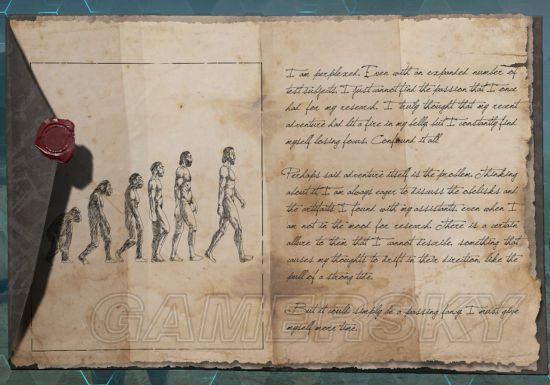 I am perplexed. Even with an expanded number of
test subjects, I just cannot find the passion that I once
had for my research. I truly thought that my recent
adventure had lit a fire in my belly, but I constantly find
myself losing focus. Confound it all!
Perhaps said adventure itself is the problem. Thinking
about it, I am always eager to discuss the obelisks and
the artifacts I found with my assistants, even when I
am not in the mood for research. There is a certain
allure to them that I cannot describe, something that
causes my thoughts to drift in their direction like the
pull of a strong tide.
But it could simply be a passing fancy. I must give
myself more time.
GAMERSKY